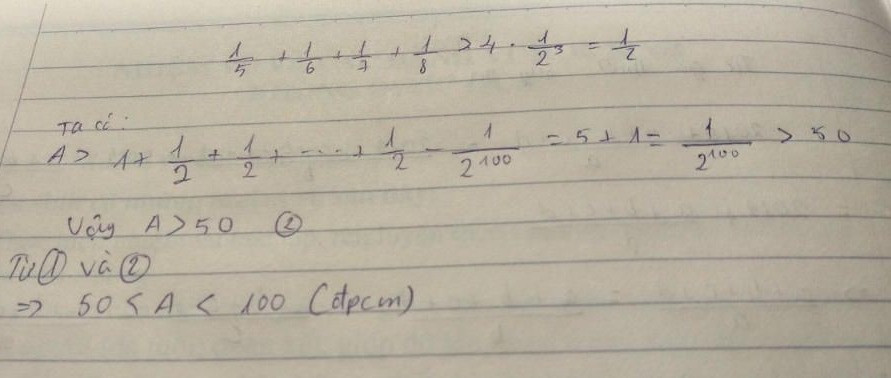 1/5 + 1/6 + 1/7 + 1/8 > 4 · 1/2³ = 1/2
Ta có:
A > 1 + 1/2 + 1/2 + ... + 1/2 - 1/2¹⁰⁰ = 5 + 1 = 1/2¹⁰⁰ > 50
Vậy A > 50 ②
Từ ① và ②
=> 50 < A < 100 (đpcm)